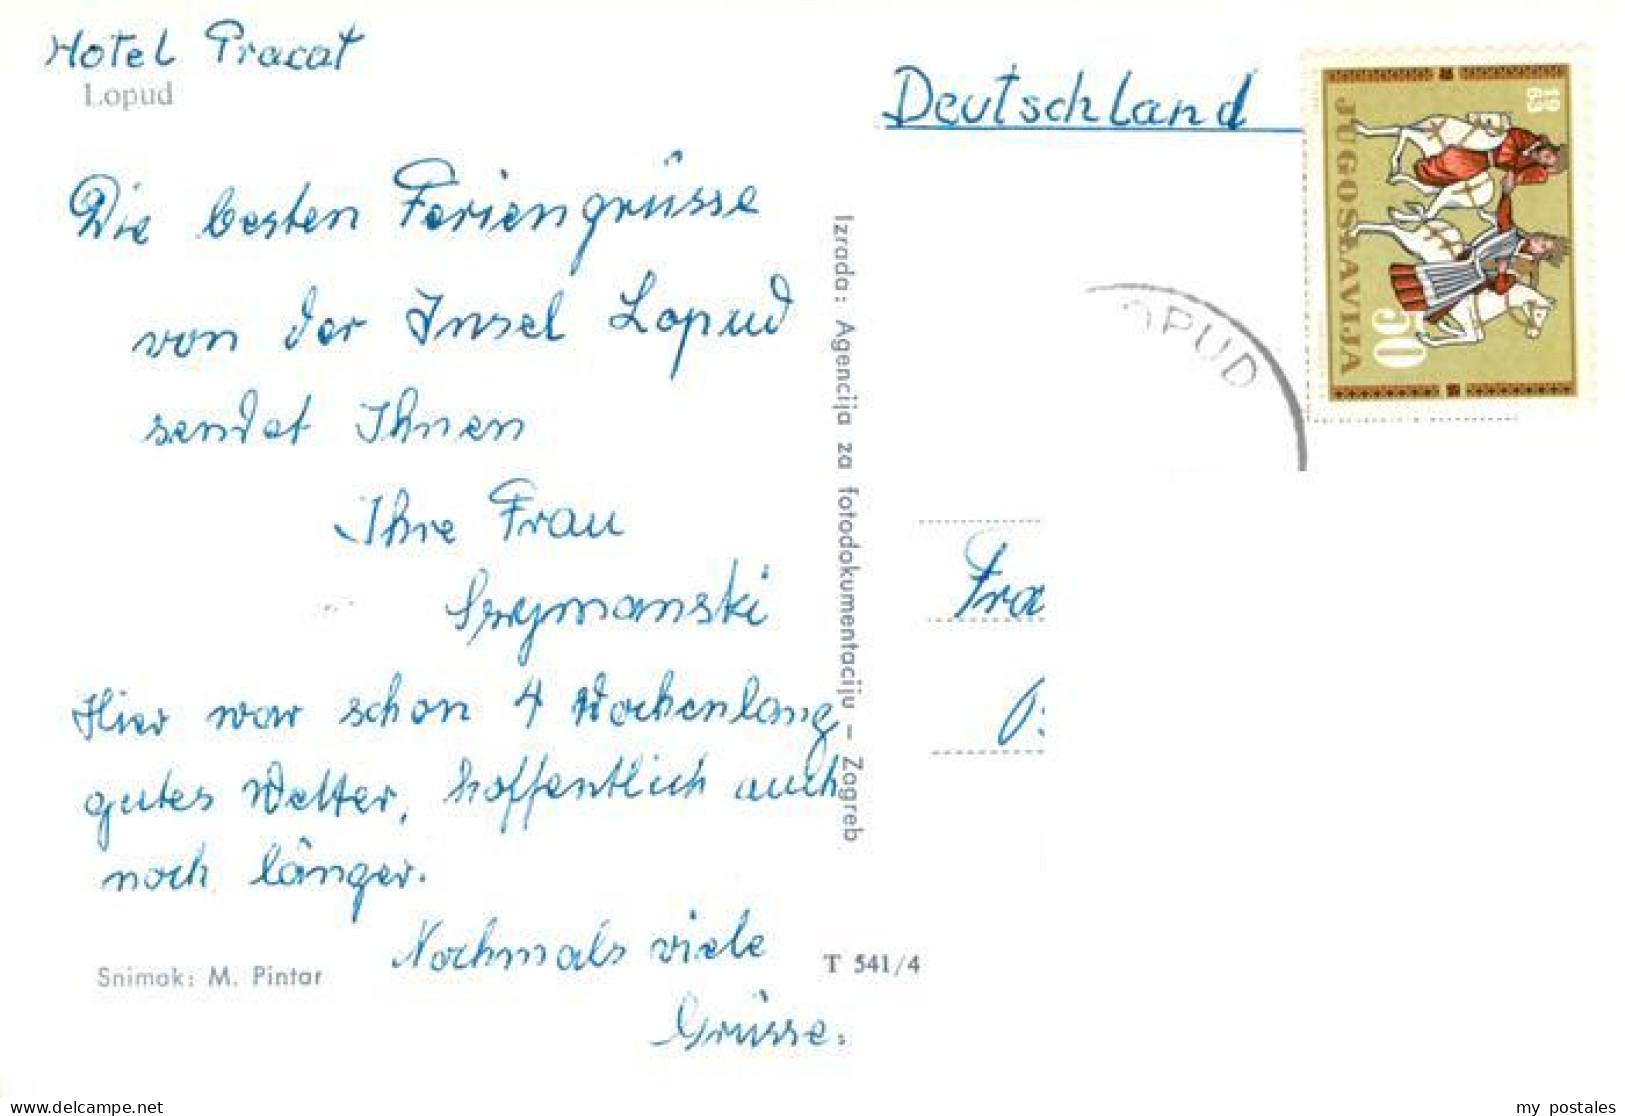 Hotel Pracat
Lopud
Die besten Feriengrüsse
von der Insel Lopud
sendet Ihnen
Ihre Frau
Szymanski
Hier war schon 4 Wochenlang
gutes Wetter, hoffentlich auch
noch länger.
Nochmals viele
Grüsse.
Snimak: M. Pintar
Izrada: Agencija za fotodokumentaciju – Zagreb
T 541/4
Deutschland
1963
JUGOSLAVIJA
50
OPUD
Fra
delcampe.net
my_postales